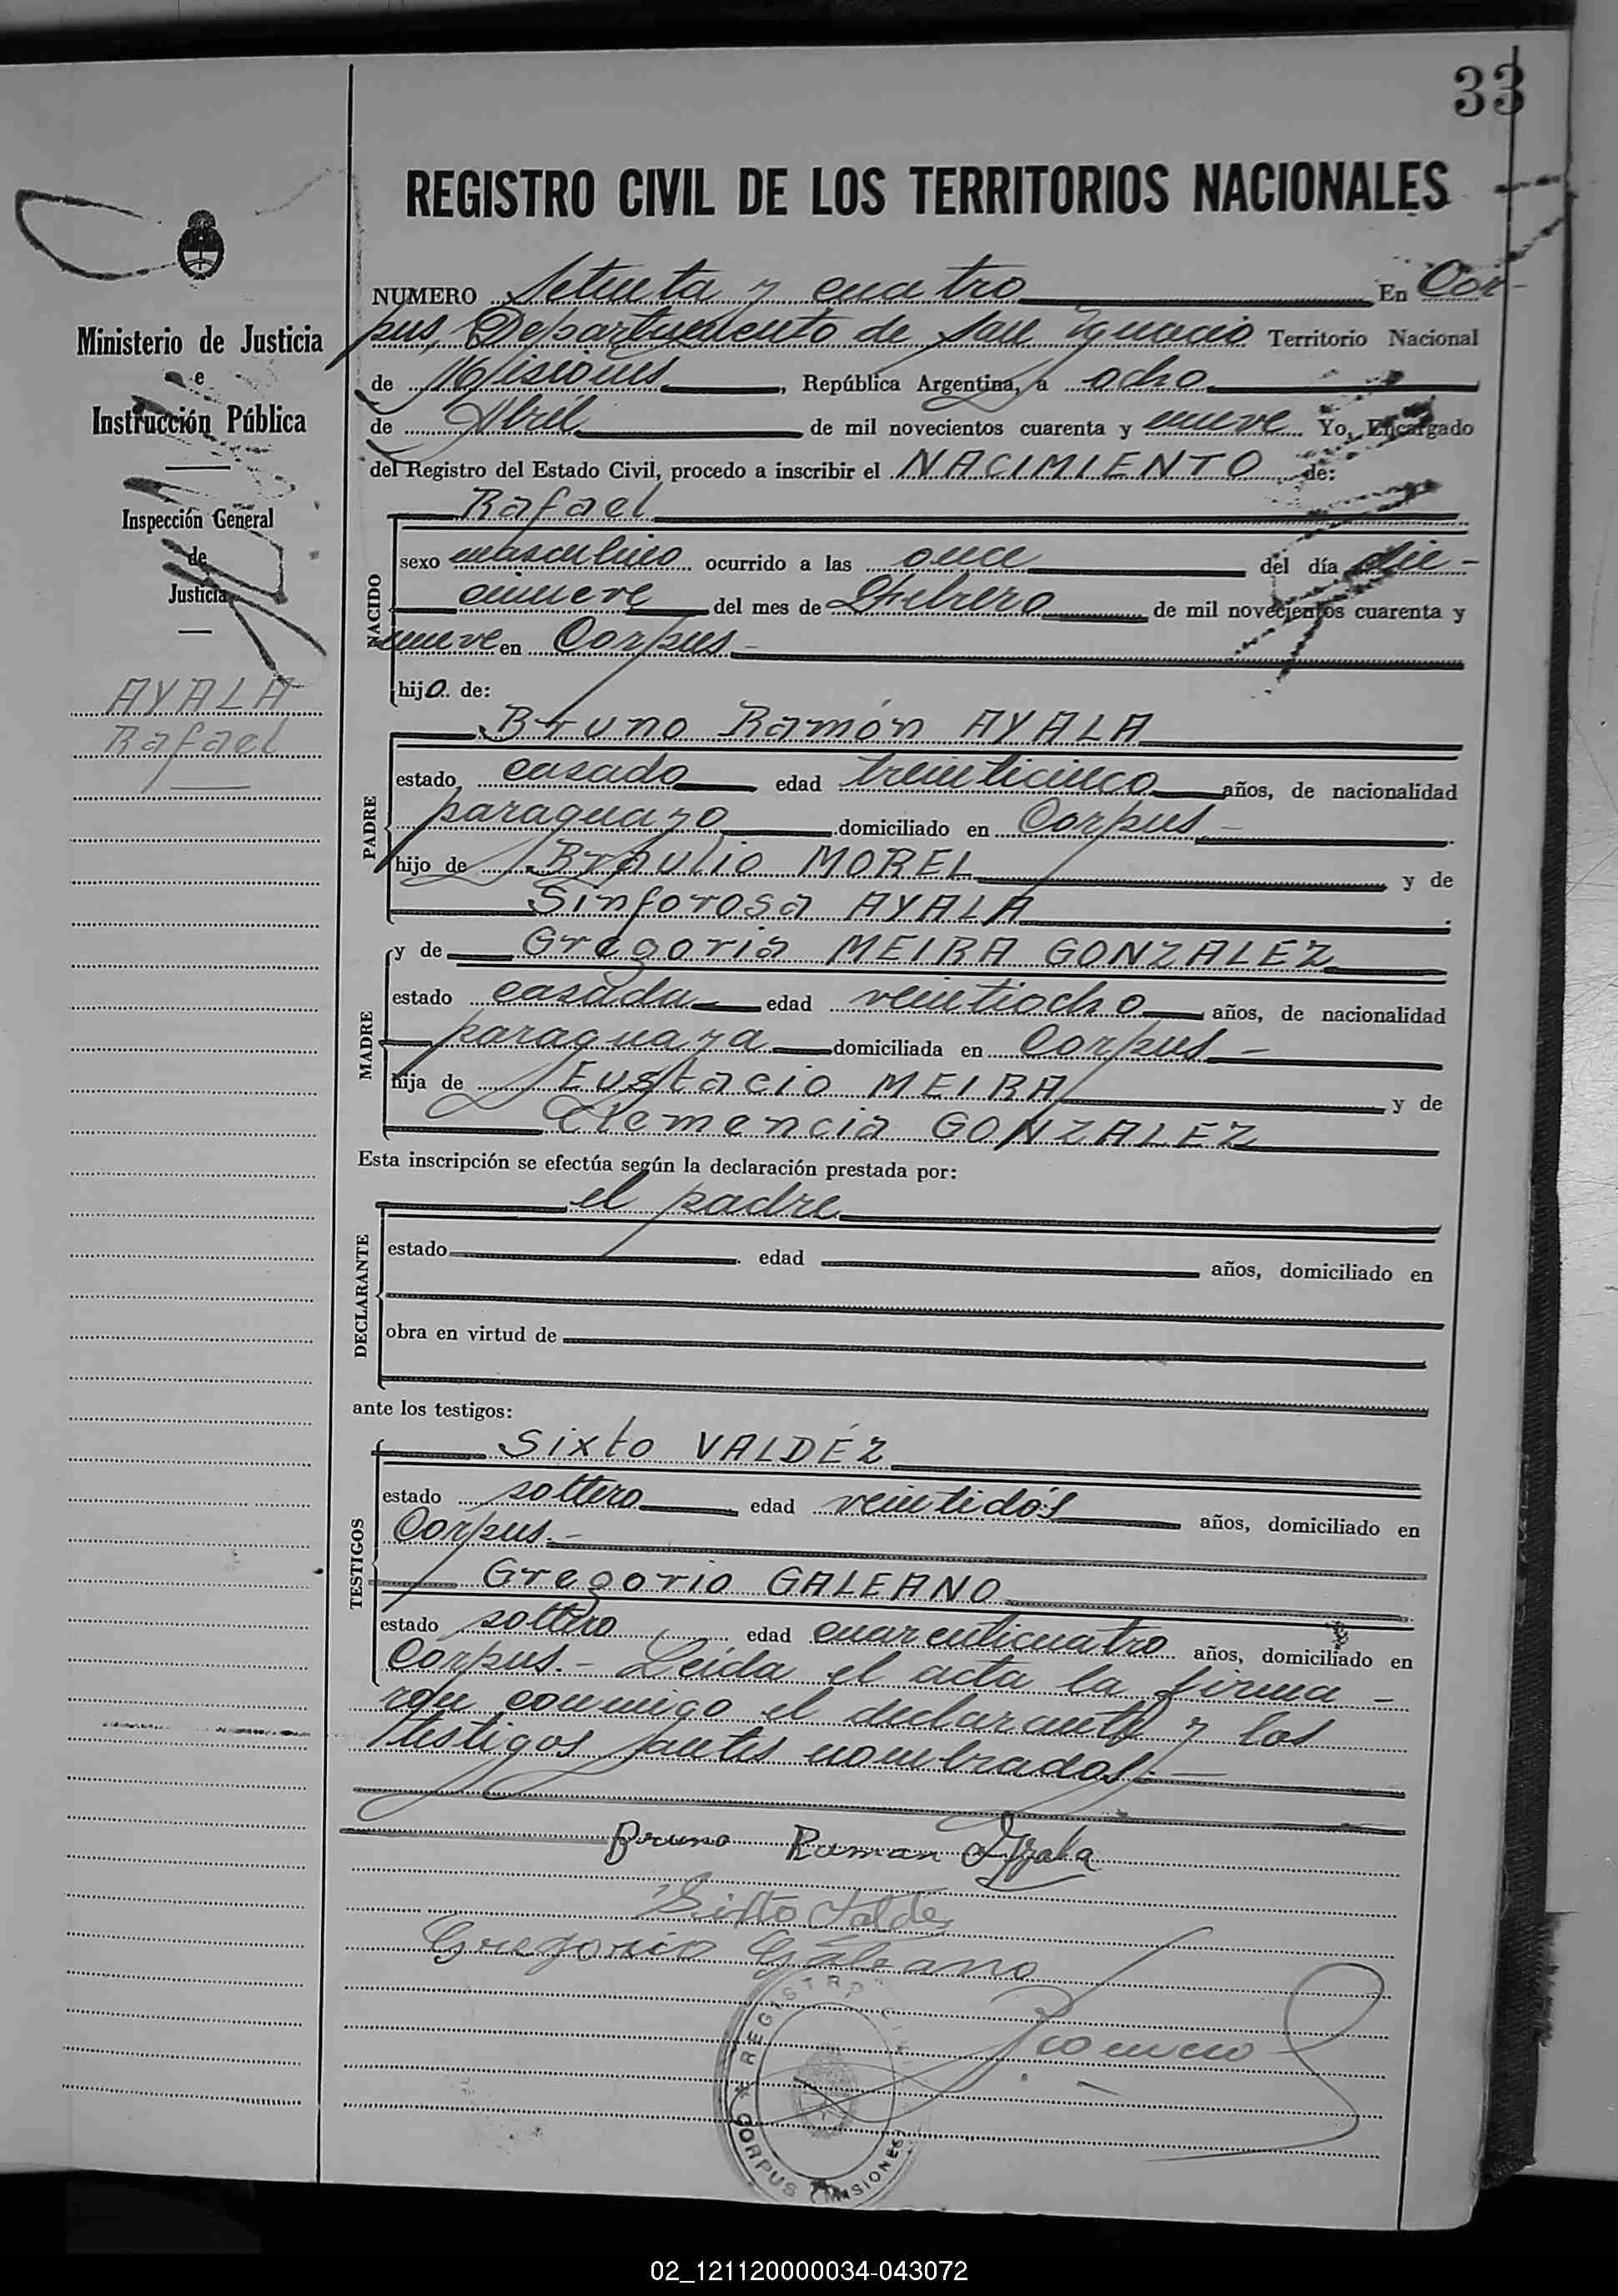 33
REGISTRO CIVIL DE LOS TERRITORIOS NACIONALES
Ministerio de Justicia
e
Instrucción Pública
Inspección General
de
Justicia
AYALA
Rafael
NUMERO Setenta y cuatro En Cor-
pus, Departamento de San Ignacio Territorio Nacional
de Misiones, República Argentina, a ocho
de Abril de mil novecientos cuarenta y nueve Yo, Encargado
del Registro del Estado Civil, procedo a inscribir el NACIMIENTO de:
NACIDO
Rafael
sexo masculino ocurrido a las once del día die-
cinueve del mes de Febrero de mil novecientos cuarenta y
nueve en Corpus-
hijo de:
PADRE
Bruno Ramón AYALA
estado casado edad treinticinco años, de nacionalidad
paraguayo domiciliado en Corpus-
hijo de Braulio MOREL y de
Sinforosa AYALA
MADRE
y de Gregoria MEIRA GONZALEZ
estado casada edad veintiocho años, de nacionalidad
paraguaya domiciliada en Corpus-
hija de Eustacio MEIRA y de
Clemencia GONZALEZ
Esta inscripción se efectúa según la declaración prestada por:
DECLARANTE
el padre
estado edad años, domiciliado en
obra en virtud de
ante los testigos:
TESTIGOS
Sixto VALDÉZ
estado soltero edad veintidós años, domiciliado en
Corpus.-
Gregorio GALEANO
estado soltero edad cuarenticuatro años, domiciliado en
Corpus.- Leída el acta la firma-
ron conmigo el declarante y los
testigos antes nombrados.-
Bruno Raman Ayala
Sixto Valdez
Gregorio Galeano
REGISTRO CIVIL
CORPUS MISIONES
02_121120000034-043072